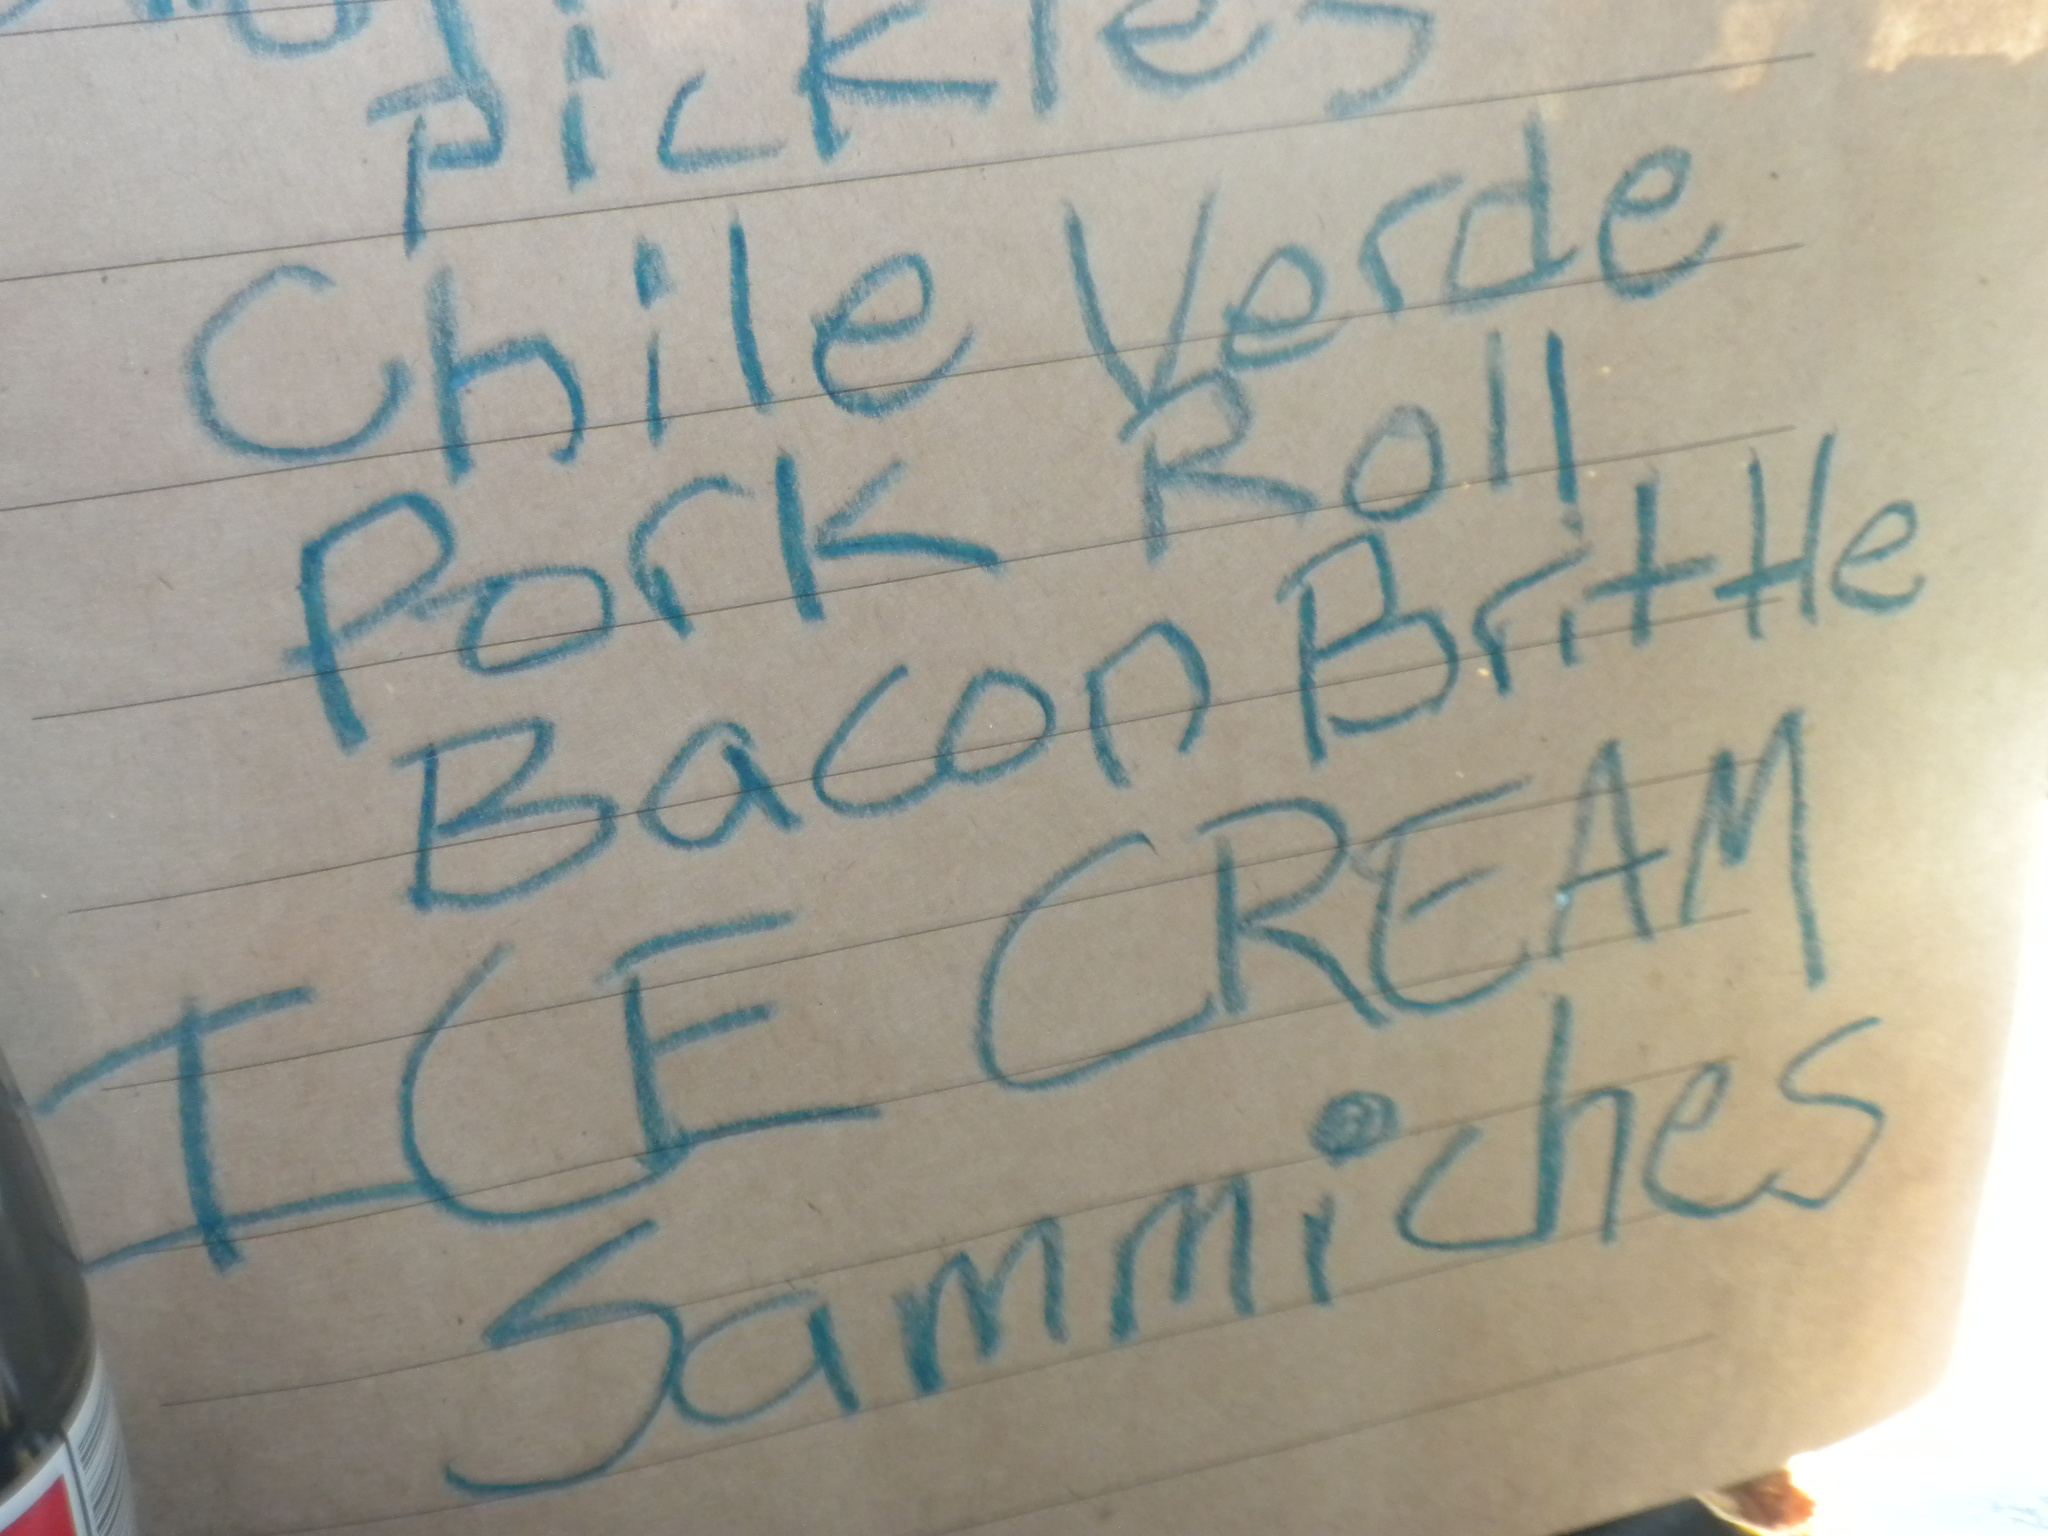 Pickles
Chile Verde
Pork Roll
Bacon Brittle
ICE CREAM
Sammiches